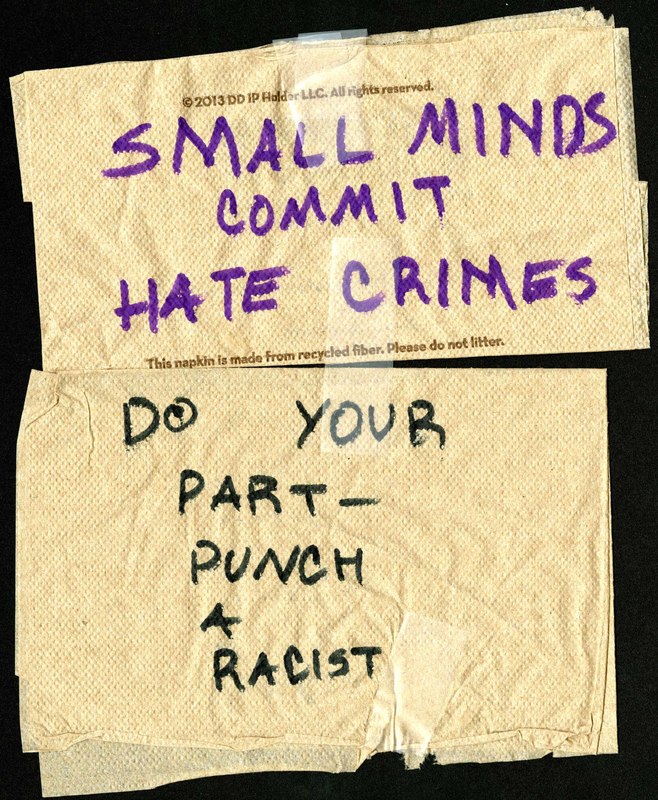 © 2013 DD IP Holder LLC. All rights reserved.
SMALL MINDS
COMMIT
HATE CRIMES
This napkin is made from recycled fiber. Please do not litter.
DO YOUR
PART—
PUNCH
A
RACIST